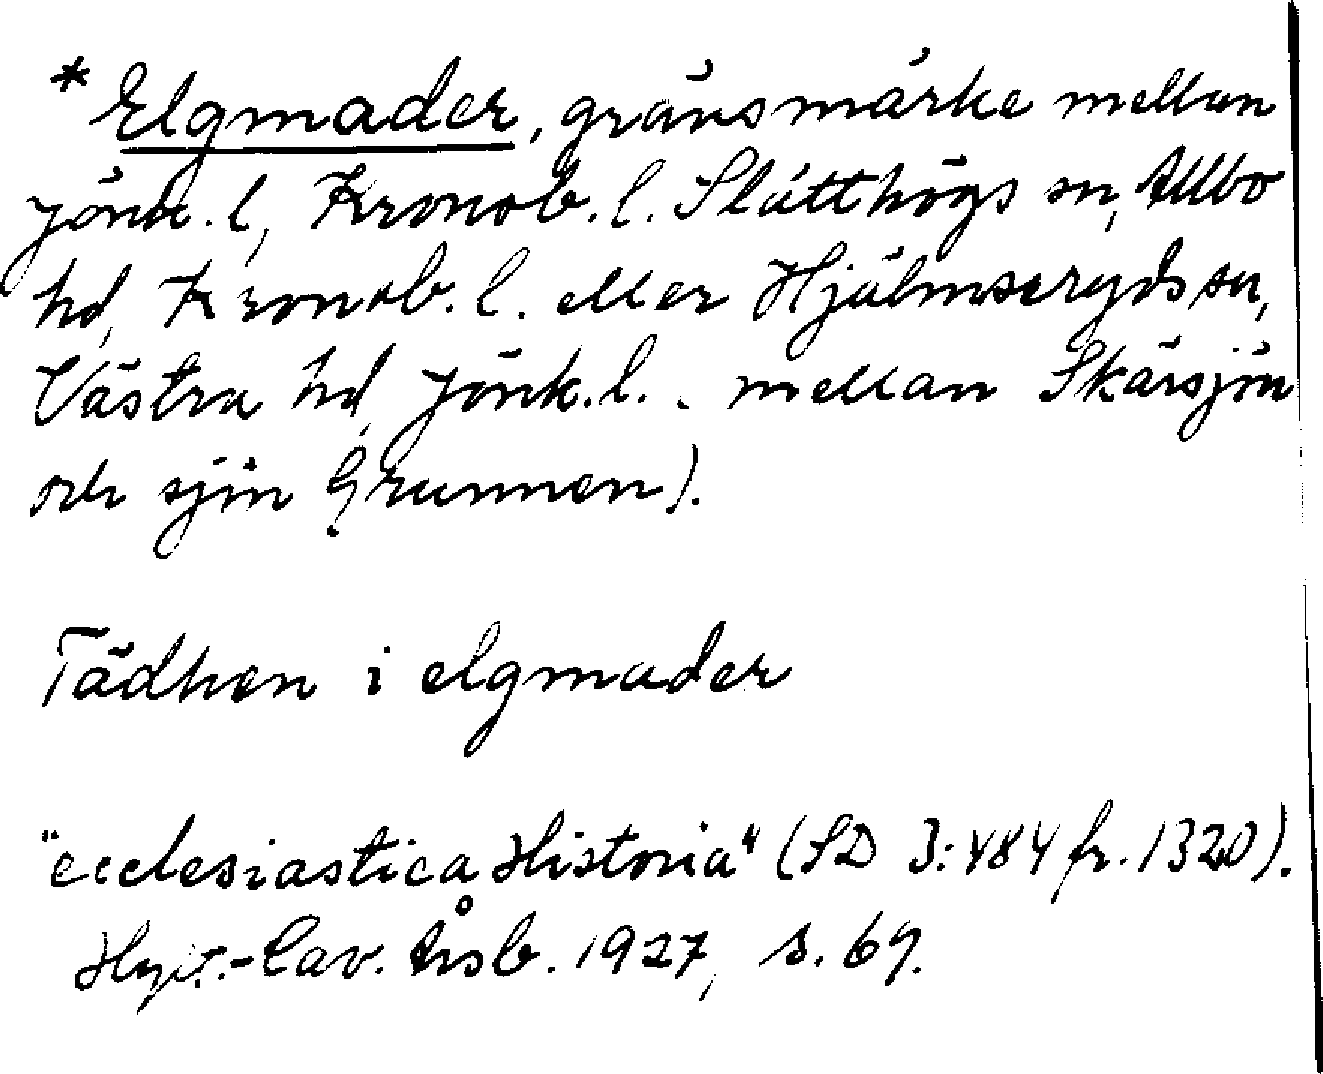 * Elgmader, gränsmärke mellan
Jönk. l, Kronob. l. Slätthögs sn, Allbo
hd, Kronob. l. eller Hjälmseryds sn,
Västra hd, Jönk. l. . mellan Skärsjön
och sjön Grunnen).
Tädhen i elgmader
"ecclesiastica Historia" (SD 3:484 fr. 1320).
Hyt.-Cav. Årsb. 1927, s. 69.